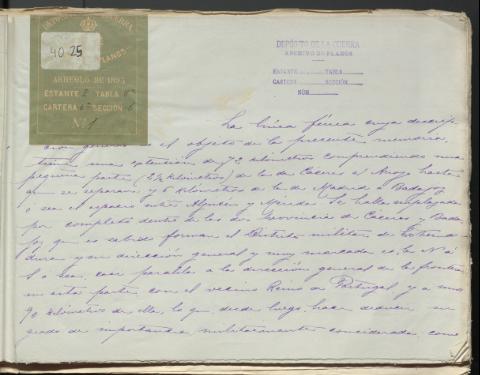 DEPÓSITO DE LA GUERRA
PLANOS
4025
ARREGLO DE 1893
ESTANTE TABLA
CARTERA SECCIÓN
DEPÓSITO DE LA GUERRA
ARCHIVO DE PLANOS
ESTANTE TABLA
CARTERA SECCIÓN
NÚM
La línea férrea cuya descrip-
ción general es el objeto de la presente memoria,
tiene una extensión de 72 kilómetros comprendiendo una
pequeña parte (2½ kilómetros) de la de Cáceres al Arroyo hasta
que se separan, y 5 kilómetros de la de Madrid a Badajoz
ó sea el espacio entre Aljucén y Mérida. Se halla emplazada
por completo dentro de las dos provincias de Cáceres y Bada-
joz que es sabido forman el Distrito militar de Extrema-
dura y su dirección general y muy marcada es de N á
S. ó sea, casi paralela á la dirección general de la frontera
en esta parte con el vecino Reino de Portugal y a unos
90 kilómetros de ella, lo que desde luego hace deducir su
grado de importancia militarmente considerada como